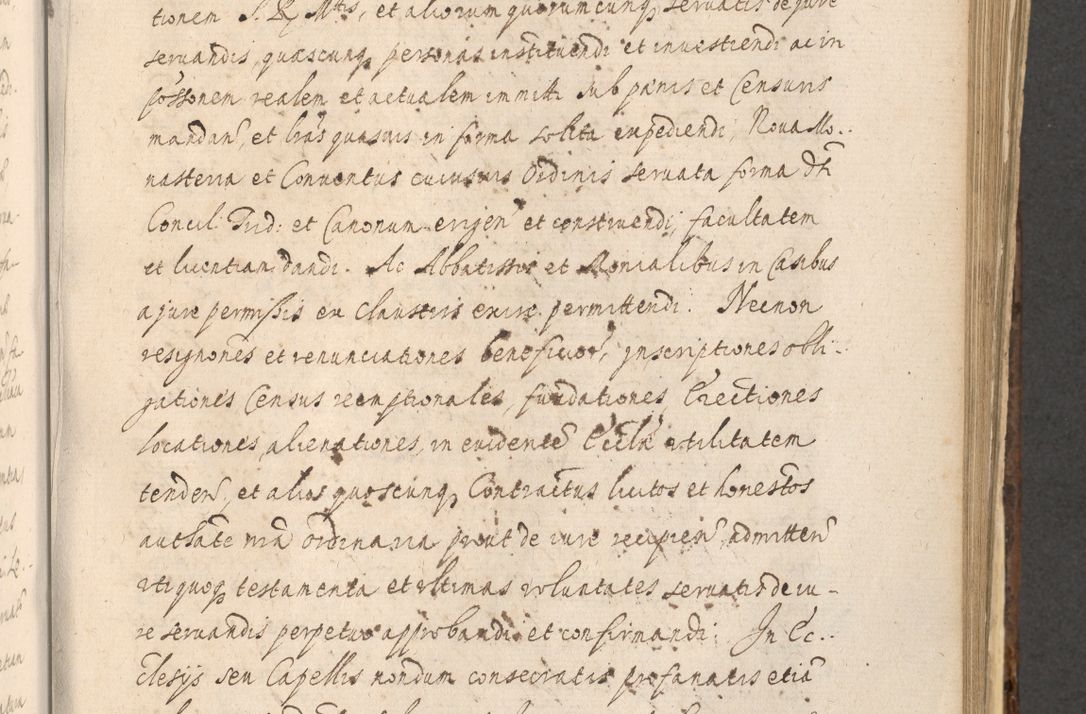 tionem S. R. Mtis, et aliorum quorumcunq servatis de jure
servandis, quascunq personas instituendi et investiendi ac in
possonem realem et actualem immitti sub pænis et Censuris
mandan, et lras quasvis in forma solita expediendi, Nova Mo..
nasteria et Conventus cuiusvis Ordinis servata forma dti
Concil: Trid: et Canonum erigen et construendi, facultatem
et licentiam dandi. Ac Abbatissis et Monialibus in Casibus
a jure permissis ex claustris exire permittendi. Necnon
resignones et renunciationes beneficior, jnscriptiones obli-
gationes Census reemptionales, fundationes Erectiones
locationes, alienationes, in evidente Eccla utilitatem
tenden, et alios quoscunq Contractus licitos et honestos
authate nra ordinaria prout de iure recipien, admitten
utiquoq testamenta et ultimas voluntates servatis de iu-
re servandis perpetuo approbandi et confirmandi; In Ec..
clesijs seu Capellis nondum consecratis profanatis etia